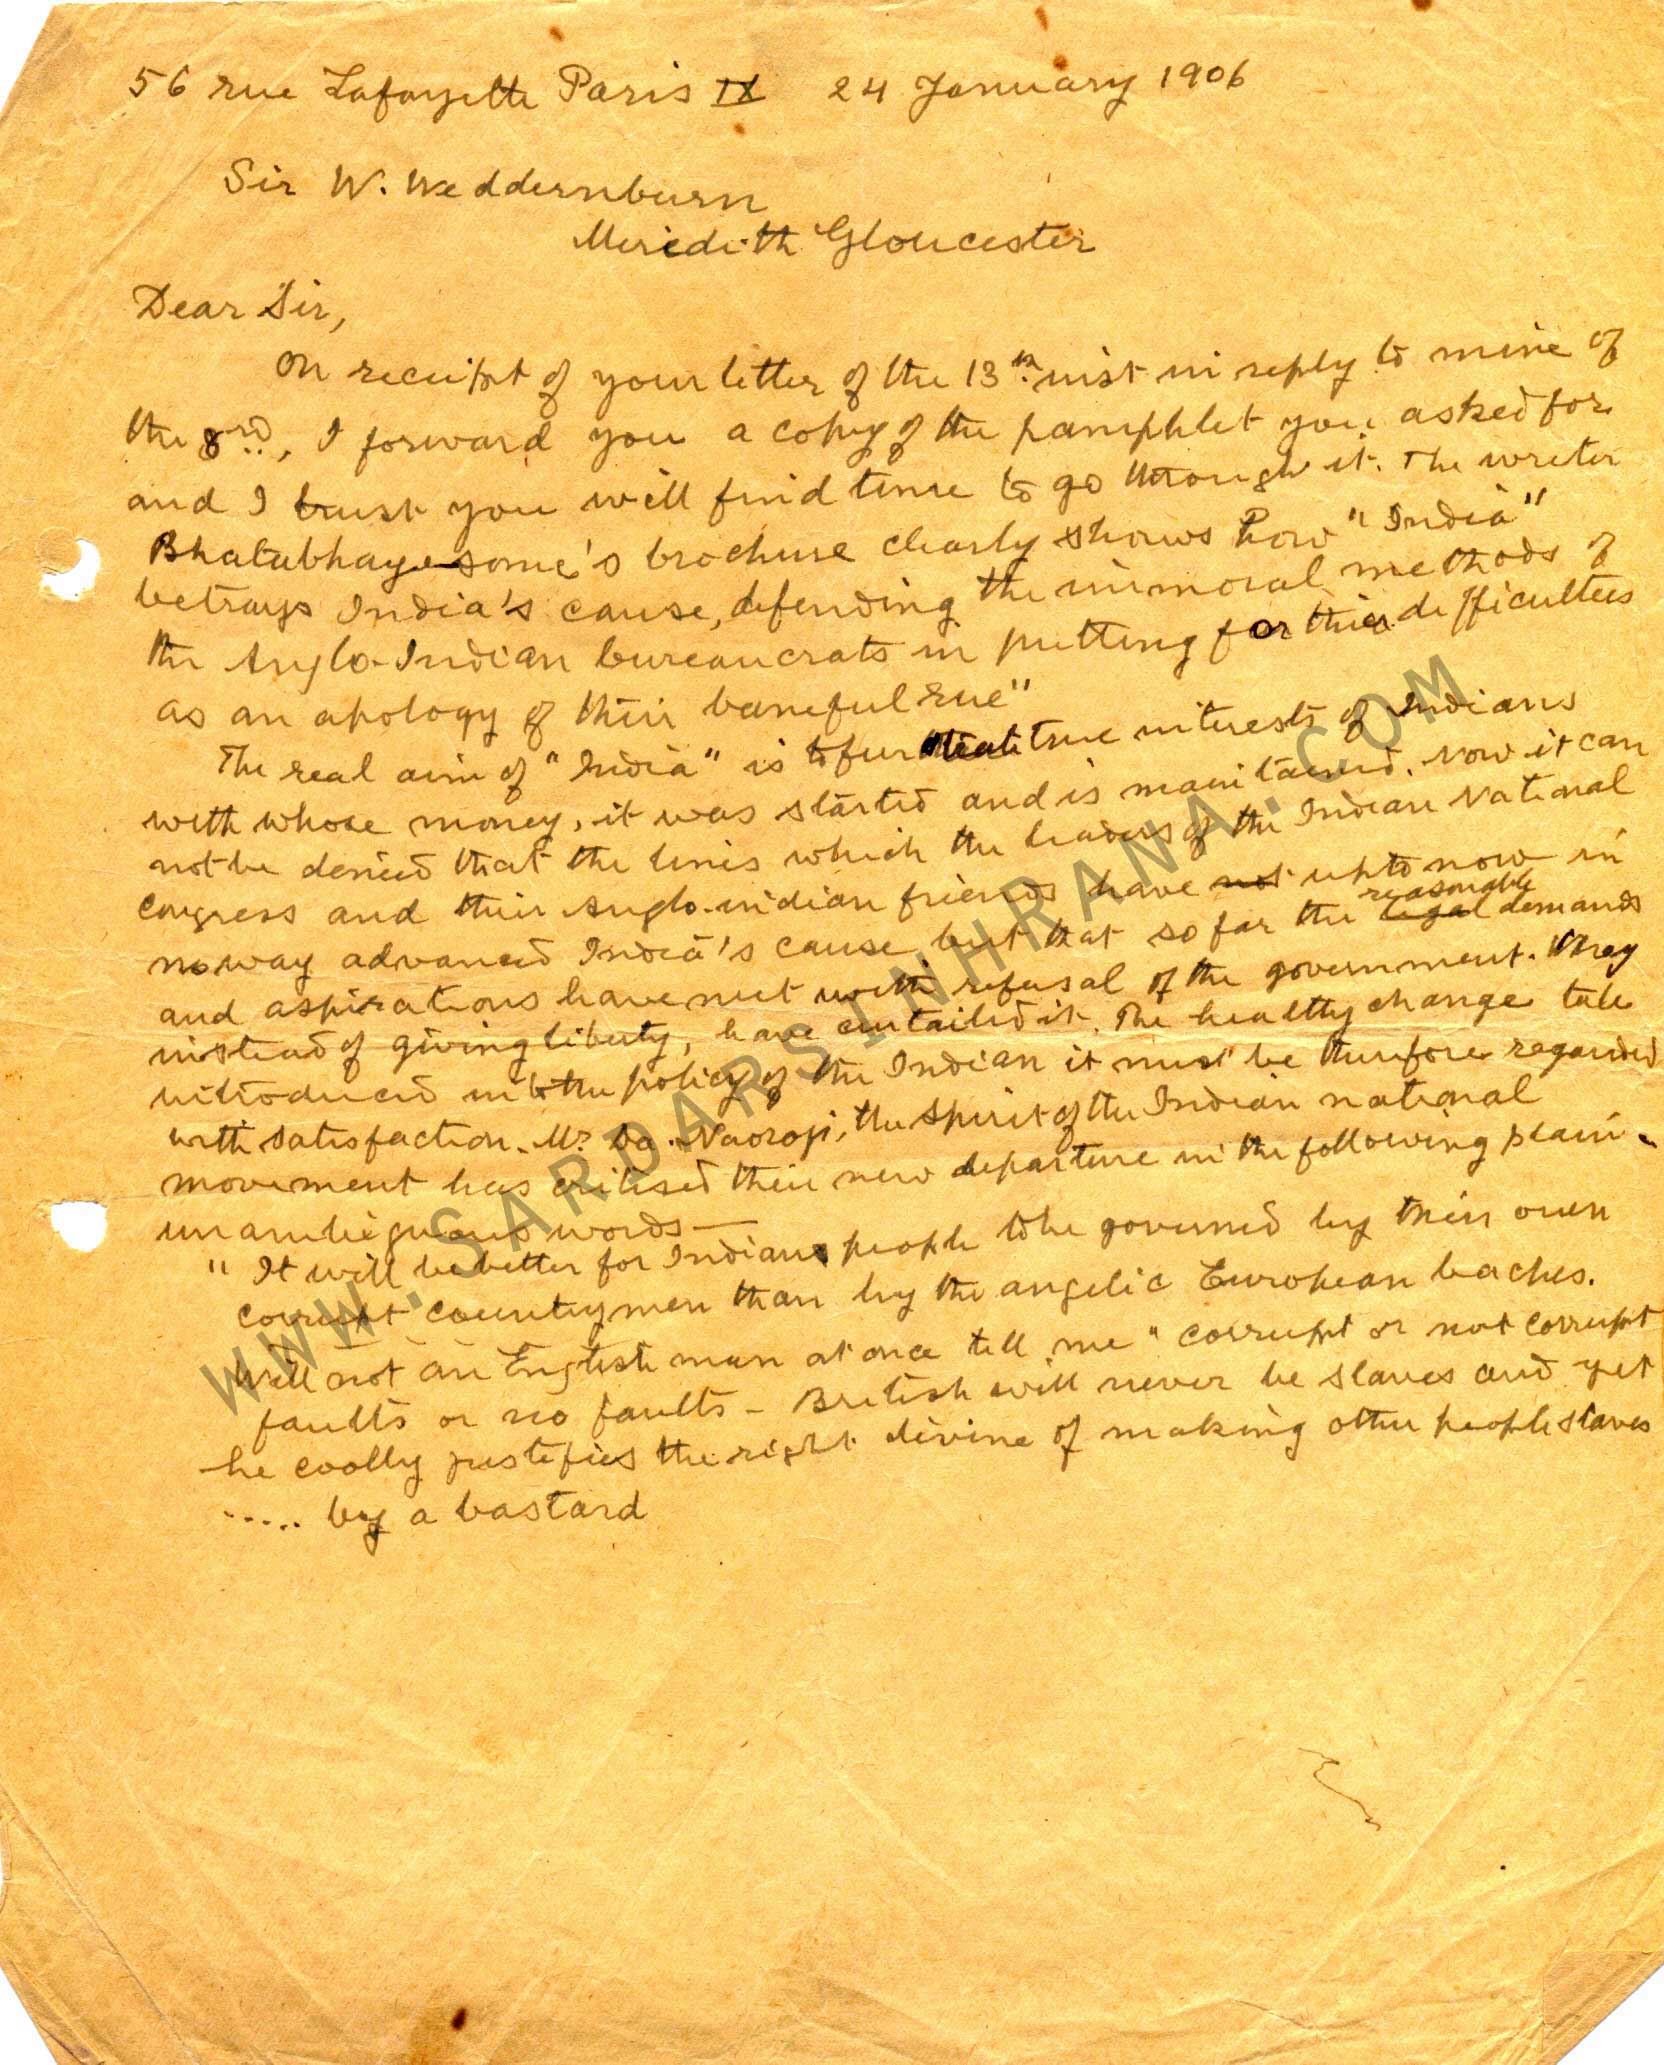 56 rue Lafayette Paris IX 24 January 1906
Sir W. Weddernburn
Meridith Gloucester
Dear Sir,
On receipt of your letter of the 13th. inst in reply to mine of
the 8rd., I forward you a copy of the pamphlet you asked for
and I trust you will find time to go through it. The writer
brochure clearly shows how "India"
betrays India's cause, defending the immoral methods of
the Anglo-Indian bureaucrats in putting for their difficulties
as an apology of their baneful rue"
The real aim of "India" is to true interests of Indians
with whose money, it was started and is maintained. Now it can
not be denied that the lines which the leaders of the Indian National
Congress and their Anglo-indian friends have not upto now in
noway advanced India's cause but that so far the legal reasonable demands
and aspirations have met with refusal of the government. They
instead of giving liberty, have curtailed it. The healthy change
introduced into the policy of the Indian it must be therefore regarded
with satisfaction. Mr Da. Naoroji, the spirit of the Indian national
movement has critised their new departure in the following plain
unambiguous words —
"It will be better for Indian people to be governed by their own
corrupt countrymen than by the angelic European
Will not an English man at once tell me "corrupt or not corrupt
faults or no faults - British will never be slaves and yet
he coolly justifies the right divine of making other people slaves
..... by a bastard
WWW.SARDARSINHRANA.COM